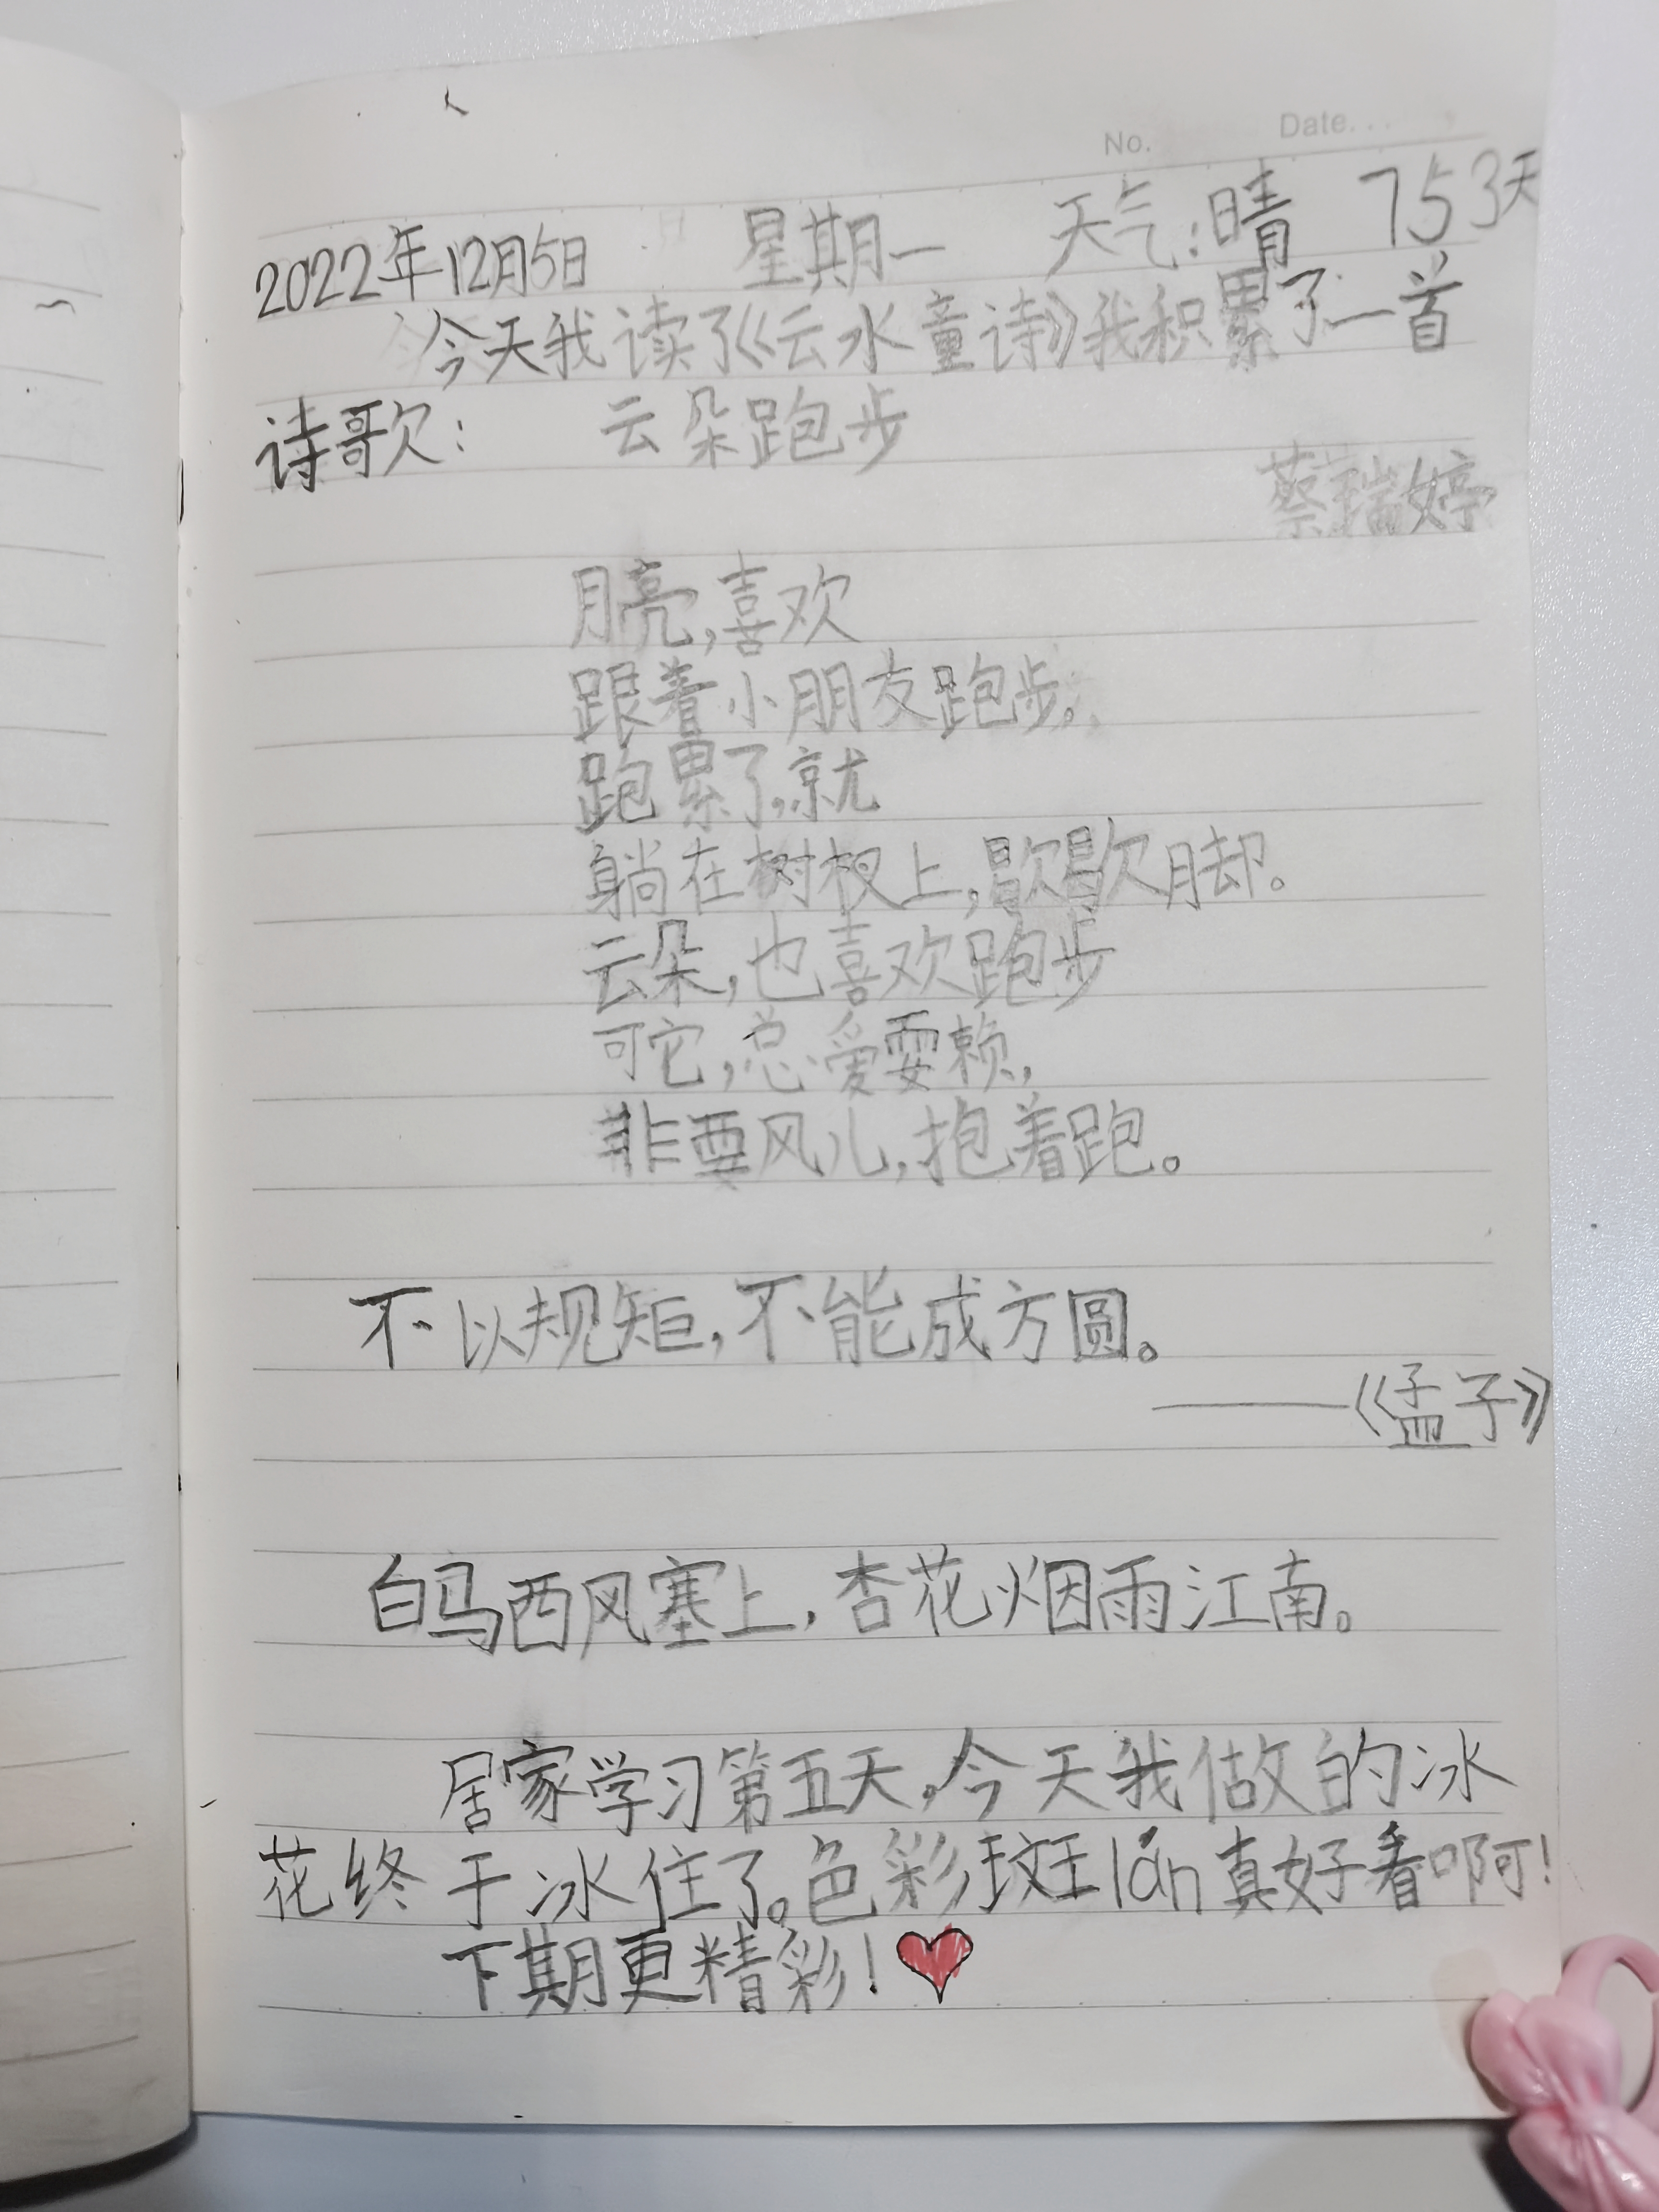 No. Date...
2022年12月5日 星期一 天气:晴 753天
今天我读了《云水童诗》我积累了一首
诗歌: 云朵跑步
蔡瑞婷
月亮,喜欢
跟着小朋友跑步,
跑累了,就
躺在树杈上,歇歇脚。
云朵,也喜欢跑步
可它,总爱耍赖,
非要风儿,抱着跑。
不以规矩,不能成方圆。
——《孟子》
白马西风塞上,杏花烟雨江南。
居家学习第五天,今天我做的冰
花终于冰住了。色彩斑lán真好看啊!
下期更精彩!